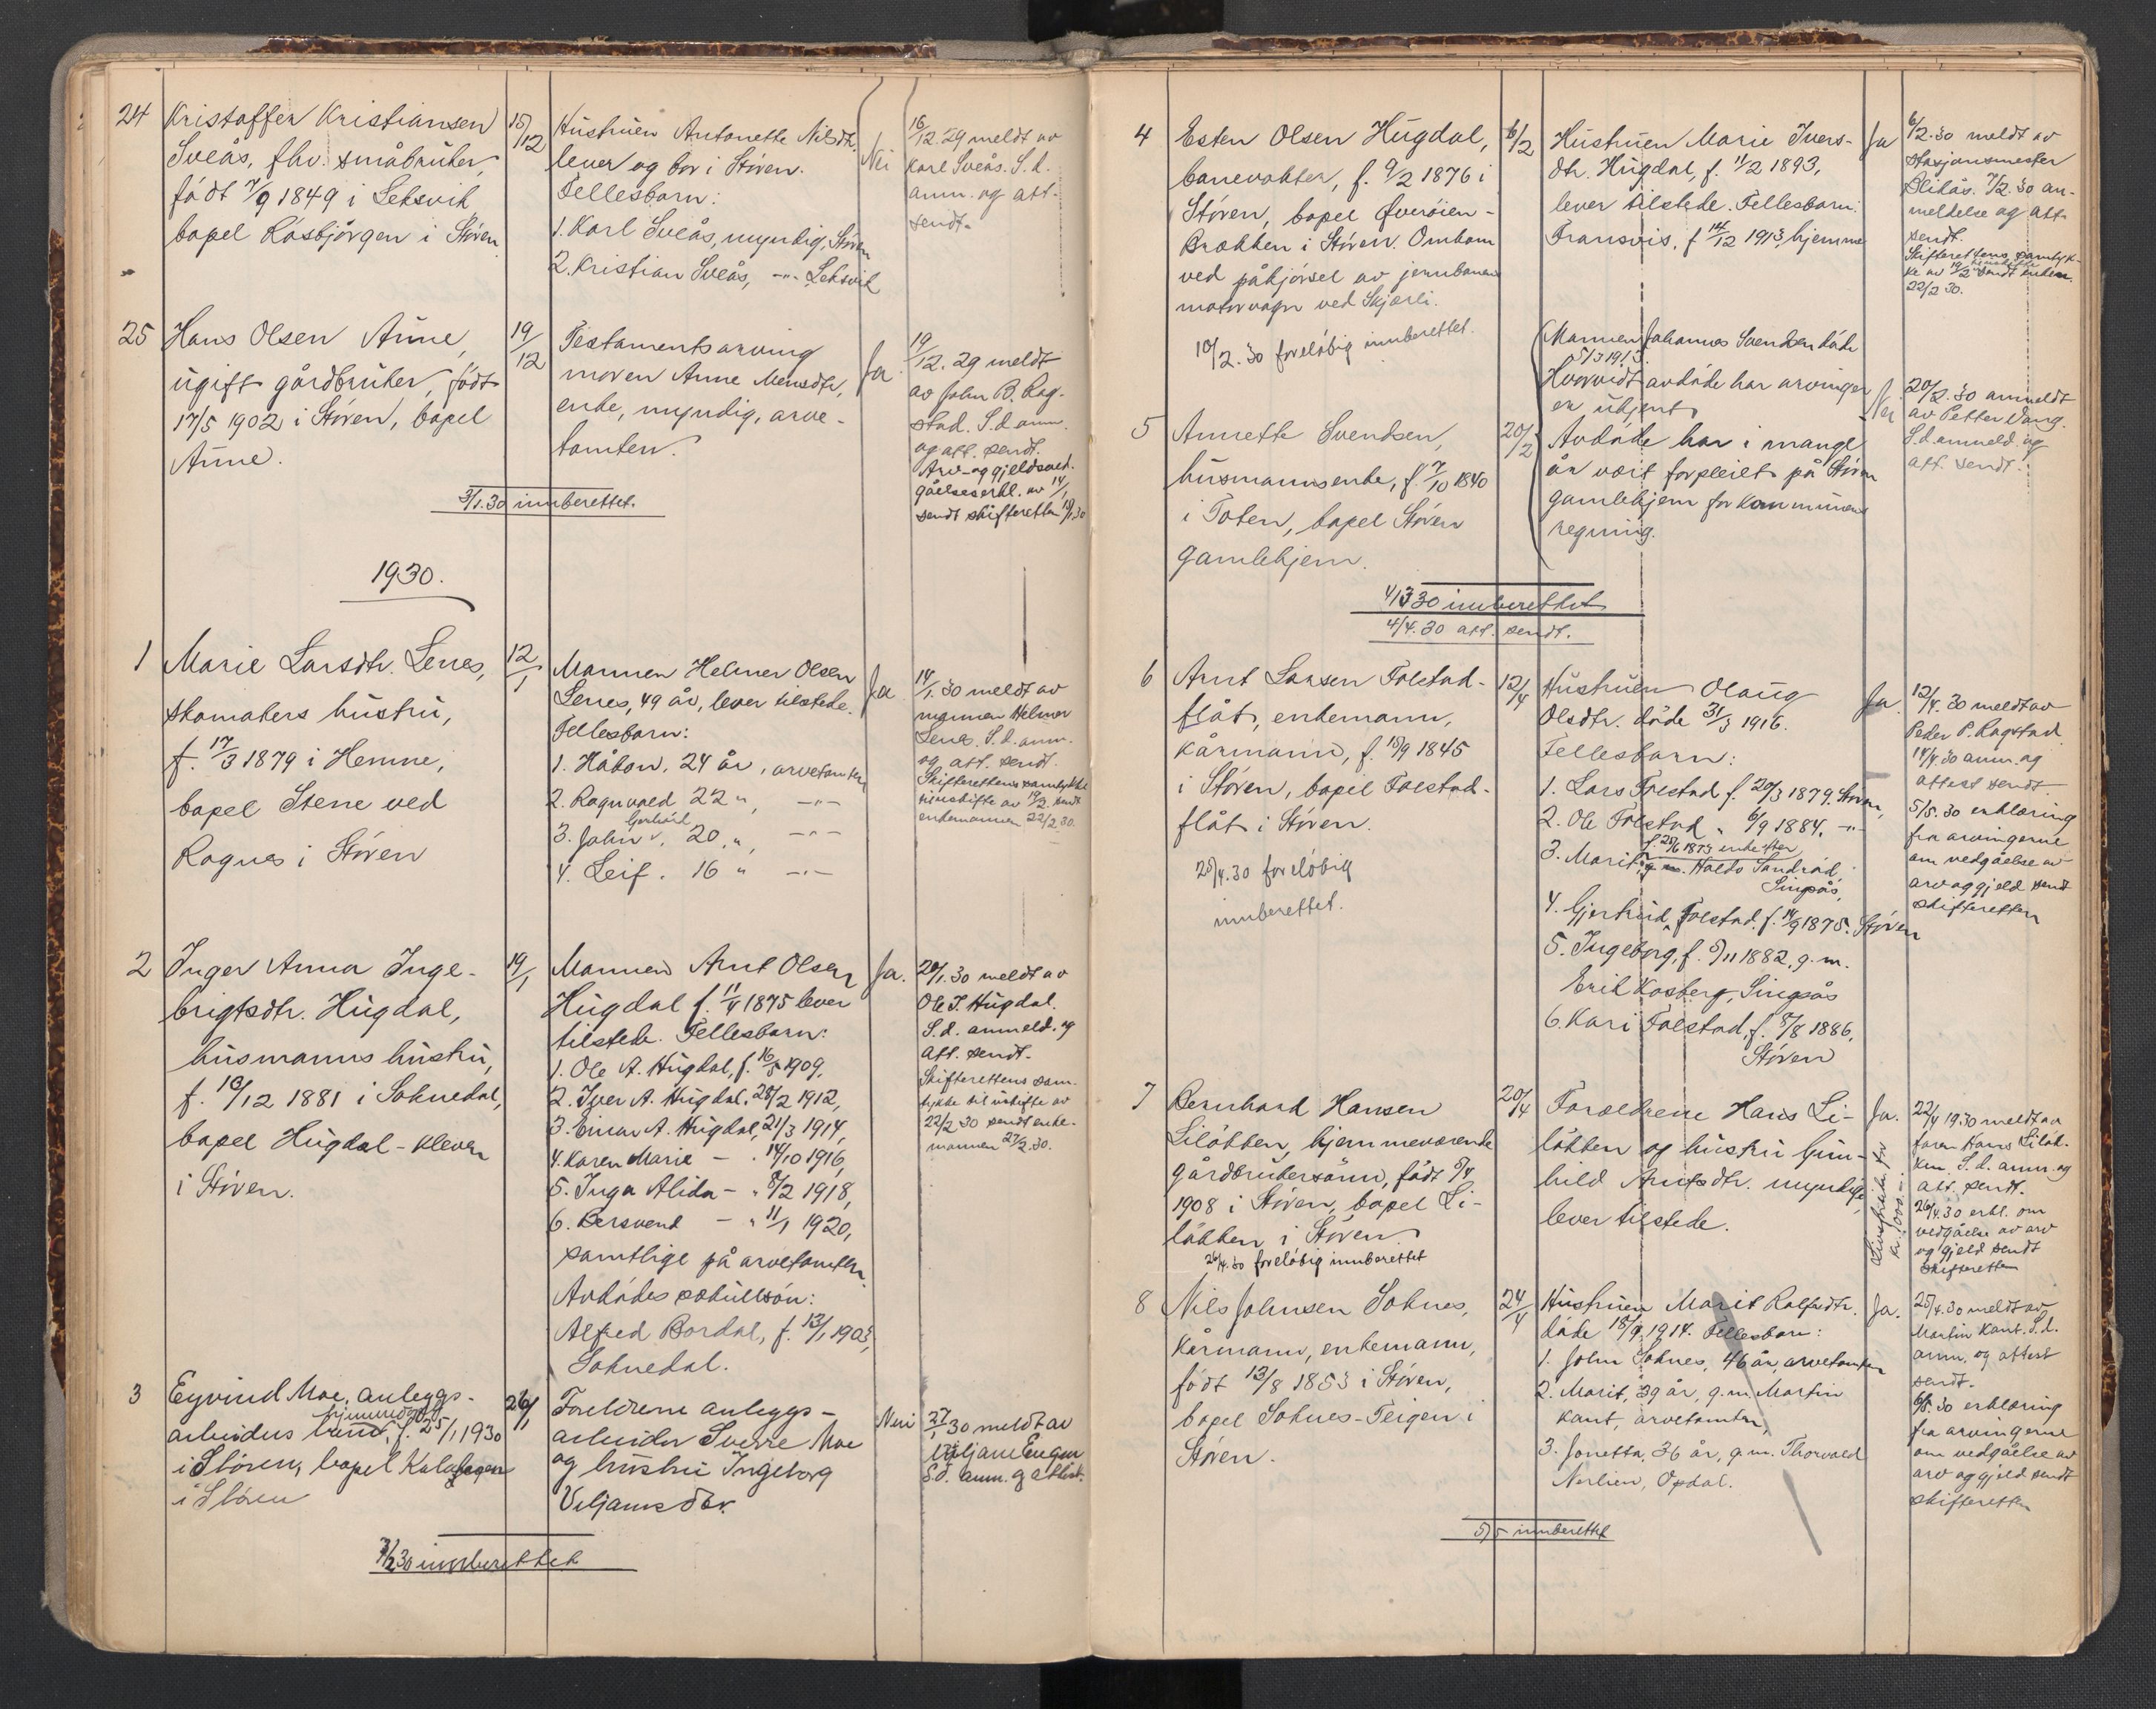 24
Kristoffer Kristiansen
Sveås, fhv. småbruker,
født 7/9 1849 i Leksvik
bopel Råsbjørgen i Støren
15/12
Hustruen Antonette Nilsdtr.
lever og bor i Støren.
Fellesbarn:
1. Karl Sveås, myndig, Støren
2. Kristian Sveås, -"- Leksvik
Nei
16/12 29 meldt av
Karl Sveås. S.d.
anm. og att.
sendt.
25
Hans Olsen Aune,
ugift gårdbruker, født
17/5 1902 i Støren, bopel
Aune.
19/12
Testamentsarving
moren Anne Monsdtr,
enke, myndig, arve-
tomten.
Ja.
19/12. 29 meldt
av John B. Rog-
stad. S.d. anm.
og att. sendt.
Arv- og gjeldsved-
gåelseserkl. av 14/1
sendt skifteretten 18/1.30
3/1.30 innberettet.
1930.
1
Marie Larsdtr. Lenes,
skomakers hustru,
f. 17/3 1879 i Hemne,
bopel Stene ved
Rognes i Støren
12/1
Mannen Helmer Olsen
Lenes, 49 år, lever tilstede.
Fellesbarn:
1. Håkon, 24 år, arvetomten
2. Ragnvald 22 ", -"-
Gerhard
3. John v, 20 ", -"-
4. Leif. 16 " -"-
Ja
14/1. 30 meldt av
mannen Helmer
Lenes. S.d. anm.
og att. sendt.
Skifterettens samtykke
til uskifte av 19/2 sendt
enkemannen 22/2.30.
2
Inger Anna Inge-
brigtsdtr. Hugdal,
husmanns hustru,
f. 13/12 1881 i Soknedal,
bopel Hugdal-kleven
i Støren.
19/1
Mannen Arnt Olsen
Hugdal f. 11/4 1875 lever
tilstede. Fellesbarn:
1. Ole A. Hugdal, f. 16/5 1909,
2. Iver A. Hugdal, 28/2 1912,
3. Einar A. Hugdal, 21/3 1914,
4. Karen Marie - " 14/10 1916,
5. Inga Alida - " 8/2 1918,
6. Bersvend - " 11/1 1920,
samtlige på arvetomten.
Avdødes særkullsøn:
Alfred Bordal, f. 13/1 1903,
Soknedal.
Ja.
20/1.30 meldt av
Ole I. Hugdal.
S.d. anmeld. og
att. sendt.
Skifterettens sam-
tykke til uskifte av
22/2 30 sendt enke-
mannen 27/2.30.
3
Eyvind Moe, anleggs-
hjemmedøpt
arbeiders barn, f. 25/1 1930
i Støren, bopel
i Støren
26/1
Foreldrene anleggs-
arbeider Sverre Moe
og hustru Ingeborg
Viljamsdtr.
Nei
27/1 30 meldt av
Viljam Engen
S.d. anm. og attest.
7/2 30 innberettet
4
Esten Olsen Hugdal,
banevokter, f. 9/2 1876 i
Støren, bopel Øverøien-
Brækken i Støren. Omkom
ved påkjørsel av jernbanens
motorvogn ved Skjærli.
10/2. 30 foreløbig innberettet.
6/2
Hustruen Marie Ivers-
dtr. Hugdal, f. 11/2 1893,
lever tilstede. Fellesbarn:
Fransvis, f. 14/12 1913, hjemme
Ja
6/2. 30 meldt av
stasjonsmester
Blikås. 7/2. 30 an-
meldelse og att.
sendt.
Skifterettens samtyk-
ke av 19/2 sendt enken
22/2 30.
5
Annette Svendsen,
husmannsenke, f. 7/10 1840
i Toten, bopel Støren
Gamlehjem.
20/2
Mannen Johannes Svendsen døde
5/3 1913.
Hvorvidt avdøde har arvinger
er ukjent.
Avdøde har i mange
år vært forpleiet på Støren
gamlehjem for kommunens
regning.
Nei
20/2. 30 anmeldt
av Petter Vang.
S.d. anmeld. og
att. sendt.
4/3 30 innberettet
4/4. 30 att. sendt.
6
Arnt Larsen Folstad-
flåt, enkemann,
kårmann, f. 18/9 1845
i Støren, bopel Folstad-
flåt i Støren.
25/4.30 foreløbig
innberettet.
12/4
Hustruen Olaug
Olsdtr. døde 31/3 1916.
Fellesbarn:
1. Lars Folstad f. 20/3 1879. Støren,
2. Ole Folstad " 6/9 1884. -"-
f. 25/6 1873 enke efter
3. Marit, g.m. Haldo Sandråd,
Singsås,
4. Gjertrud Folstad, f. 14/9 1875. Støren
5. Ingeborg, f. 5/11 1882, g.m.
Erik Kosberg, Singsås
6. Kari Folstad, f. 8/8 1886,
Støren
Ja.
12/4. 30 meldt av
Peder P. Rogstad
14/4.30 anm. og
attest sendt.
5/5. 30 erklæring
fra arvingerne
om vedgåelse av
arv og gjeld sendt
skifteretten
7
Bernhard Hansen
Liløkken, hjemmeværende
gårdbrukersønn, født 5/4
1908 i Støren, bopel Li-
løkken i Støren.
26/4.30 foreløbig innberettet
20/4
Foreldrene Hans Li-
løkken og hustru Gun-
hild Arntsdtr. myndige,
lever tilstede.
Ja.
Livsforsikr. for
kr. 1000.-
22/4 1930 meldt av
faren Hans Liløk-
ken. S.d. anm. og
att. sendt.
26/4.30 erkl. om
vedgåelse av arv
og gjeld sendt
skifteretten
8
Nils Johnsen Soknes,
kårmann, enkemann,
født 13/8 1853 i Støren,
bopel Soknes-Teigen i
Støren.
24/4
Hustruen Marit Rolfsdtr.
døde 18/9 1914. Fellesbarn:
1. John Soknes, 46 år, arvetomten
2. Marit, 39 år, g.m. Martin
Kant, arvetomten,
3. Jonetta, 36 år, g.m. Thorvald
Nerlien, Opdal.
Ja.
25/4.30 meldt av
Martin Kant. S.d.
anm. og attest
sendt.
6/5. 30 erklæring
fra arvingerne
om vedgåelse av
arv og gjeld sendt
skifteretten
5/5 innberettet